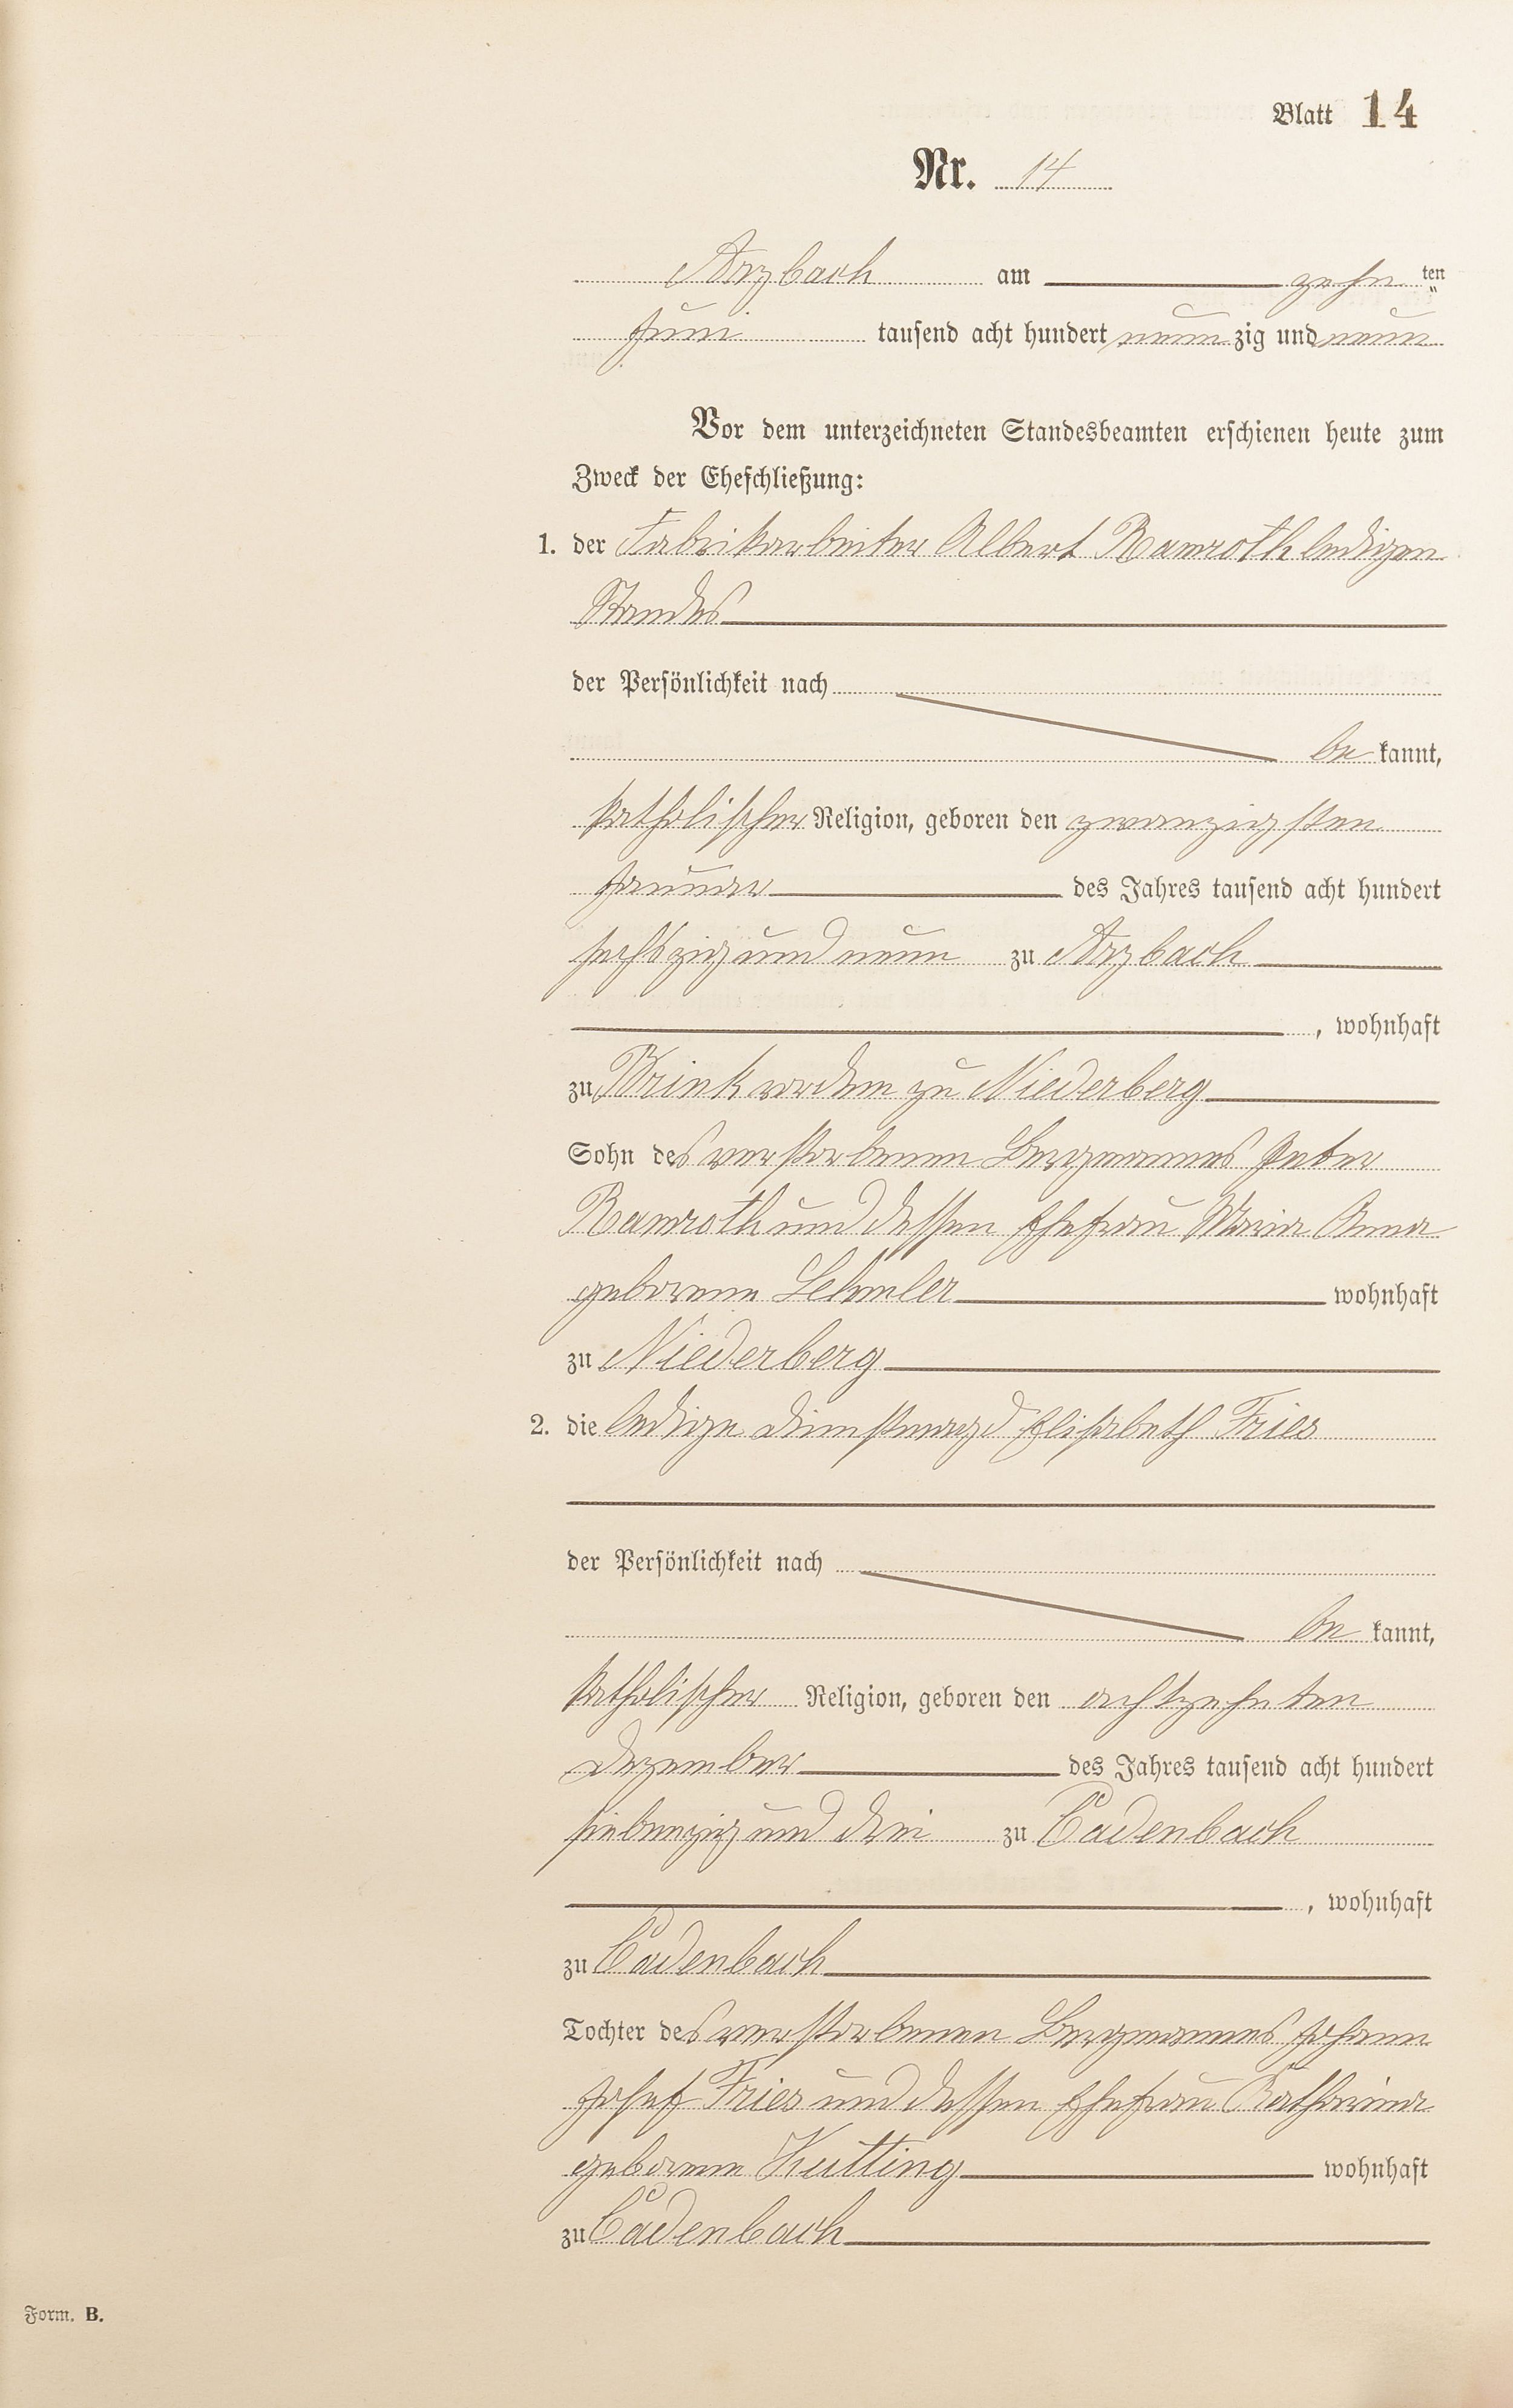 Blatt 14
Nr. 14
Arzbach am zehn ten
Juni tausend acht hundert neun zig und neun
Vor dem unterzeichneten Standesbeamten erschienen heute zum
Zweck der Eheschließung:
1. der Fabrikarbeiter Albert Ramroth ledigen
Standes
der Persönlichkeit nach
be kannt,
katholischer Religion, geboren den zwanzigsten
Januar des Jahres tausend acht hundert
sechszig und neun zu Arzbach
, wohnhaft
zu vordem zu Niederberg
Sohn des verstorbenen Bergmannes Peter
Ramroth und dessen Ehefrau Maria Anna
geborene wohnhaft
zu Niederberg
2. die ledige Dienstmagd Elisabeth Fries
der Persönlichkeit nach
be kannt,
katholischer Religion, geboren den achtzehnten
Dezember des Jahres tausend acht hundert
siebenzig und drei zu Cadenbach
, wohnhaft
zu Cadenbach
Tochter des verstorbenen Bergmannes Johann
Josef Fries und dessen Ehefrau Katharina
geborene Kutting wohnhaft
zu Cadenbach
Form. B.